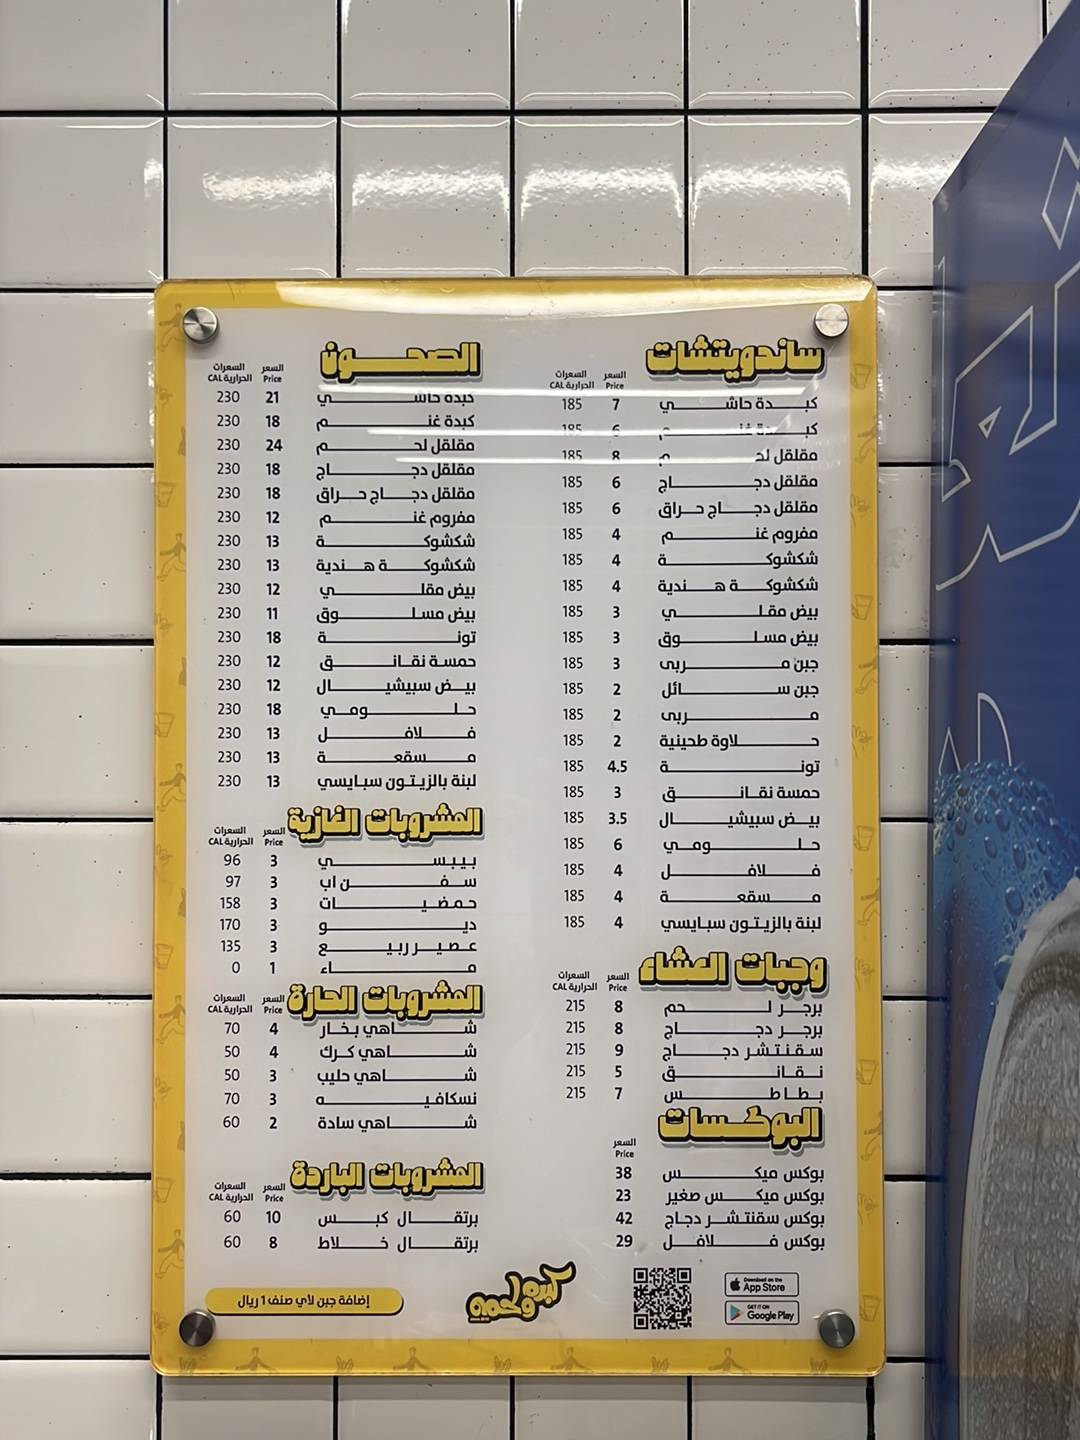 ساندويتشات
السعر Price
السعرات الحرارية CAL
كبدة حاشي 7 185
كبدة غنم 6 185
مقلقل لحم 8 185
مقلقل دجاج 6 185
مقلقل دجاج حراق 6 185
مفروم غنم 4 185
شكشوكة 4 185
شكشوكة هندية 4 185
بيض مقلي 3 185
بيض مسلوق 3 185
جبن مربى 3 185
جبن سائل 2 185
مربى 2 185
حلاوة طحينية 2 185
تونة 4.5 185
حمسة نقانق 3 185
بيض سبيشيال 3.5 185
حلومي 6 185
فلافل 4 185
مسقعة 4 185
لبنة بالزيتون سبايسي 4 185
وجبات العشاء
السعر Price
السعرات الحرارية CAL
برجر لحم 8 215
برجر دجاج 8 215
سقنتشر دجاج 9 215
نقانق 5 215
بطاطس 7 215
البوكسات
السعر Price
بوكس ميكس 38
بوكس ميكس صغير 23
بوكس سقنتشر دجاج 42
بوكس فلافل 29
Download on the App Store
GET IT ON Google Play
الصحون
السعر Price
السعرات الحرارية CAL
كبدة حاشي 21 230
كبدة غنم 18 230
مقلقل لحم 24 230
مقلقل دجاج 18 230
مقلقل دجاج حراق 18 230
مفروم غنم 12 230
شكشوكة 13 230
شكشوكة هندية 13 230
بيض مقلي 12 230
بيض مسلوق 11 230
تونة 18 230
حمسة نقانق 12 230
بيض سبيشيال 12 230
حلومي 18 230
فلافل 13 230
مسقعة 13 230
لبنة بالزيتون سبايسي 13 230
المشروبات الغازية
السعر Price
السعرات الحرارية CAL
بيبسي 3 96
سفن اب 3 97
حمضيات 3 158
ديو 3 170
عصير ربيع 3 135
ماء 1 0
المشروبات الحارة
السعر Price
السعرات الحرارية CAL
شاهي بخار 4 70
شاهي كرك 4 50
شاهي حليب 3 50
نسكافيه 3 70
شاهي سادة 2 60
المشروبات الباردة
السعر Price
السعرات الحرارية CAL
برتقال كبس 10 60
برتقال خلاط 8 60
كبده ولحميه
إضافة جبن لأي صنف 1 ريال